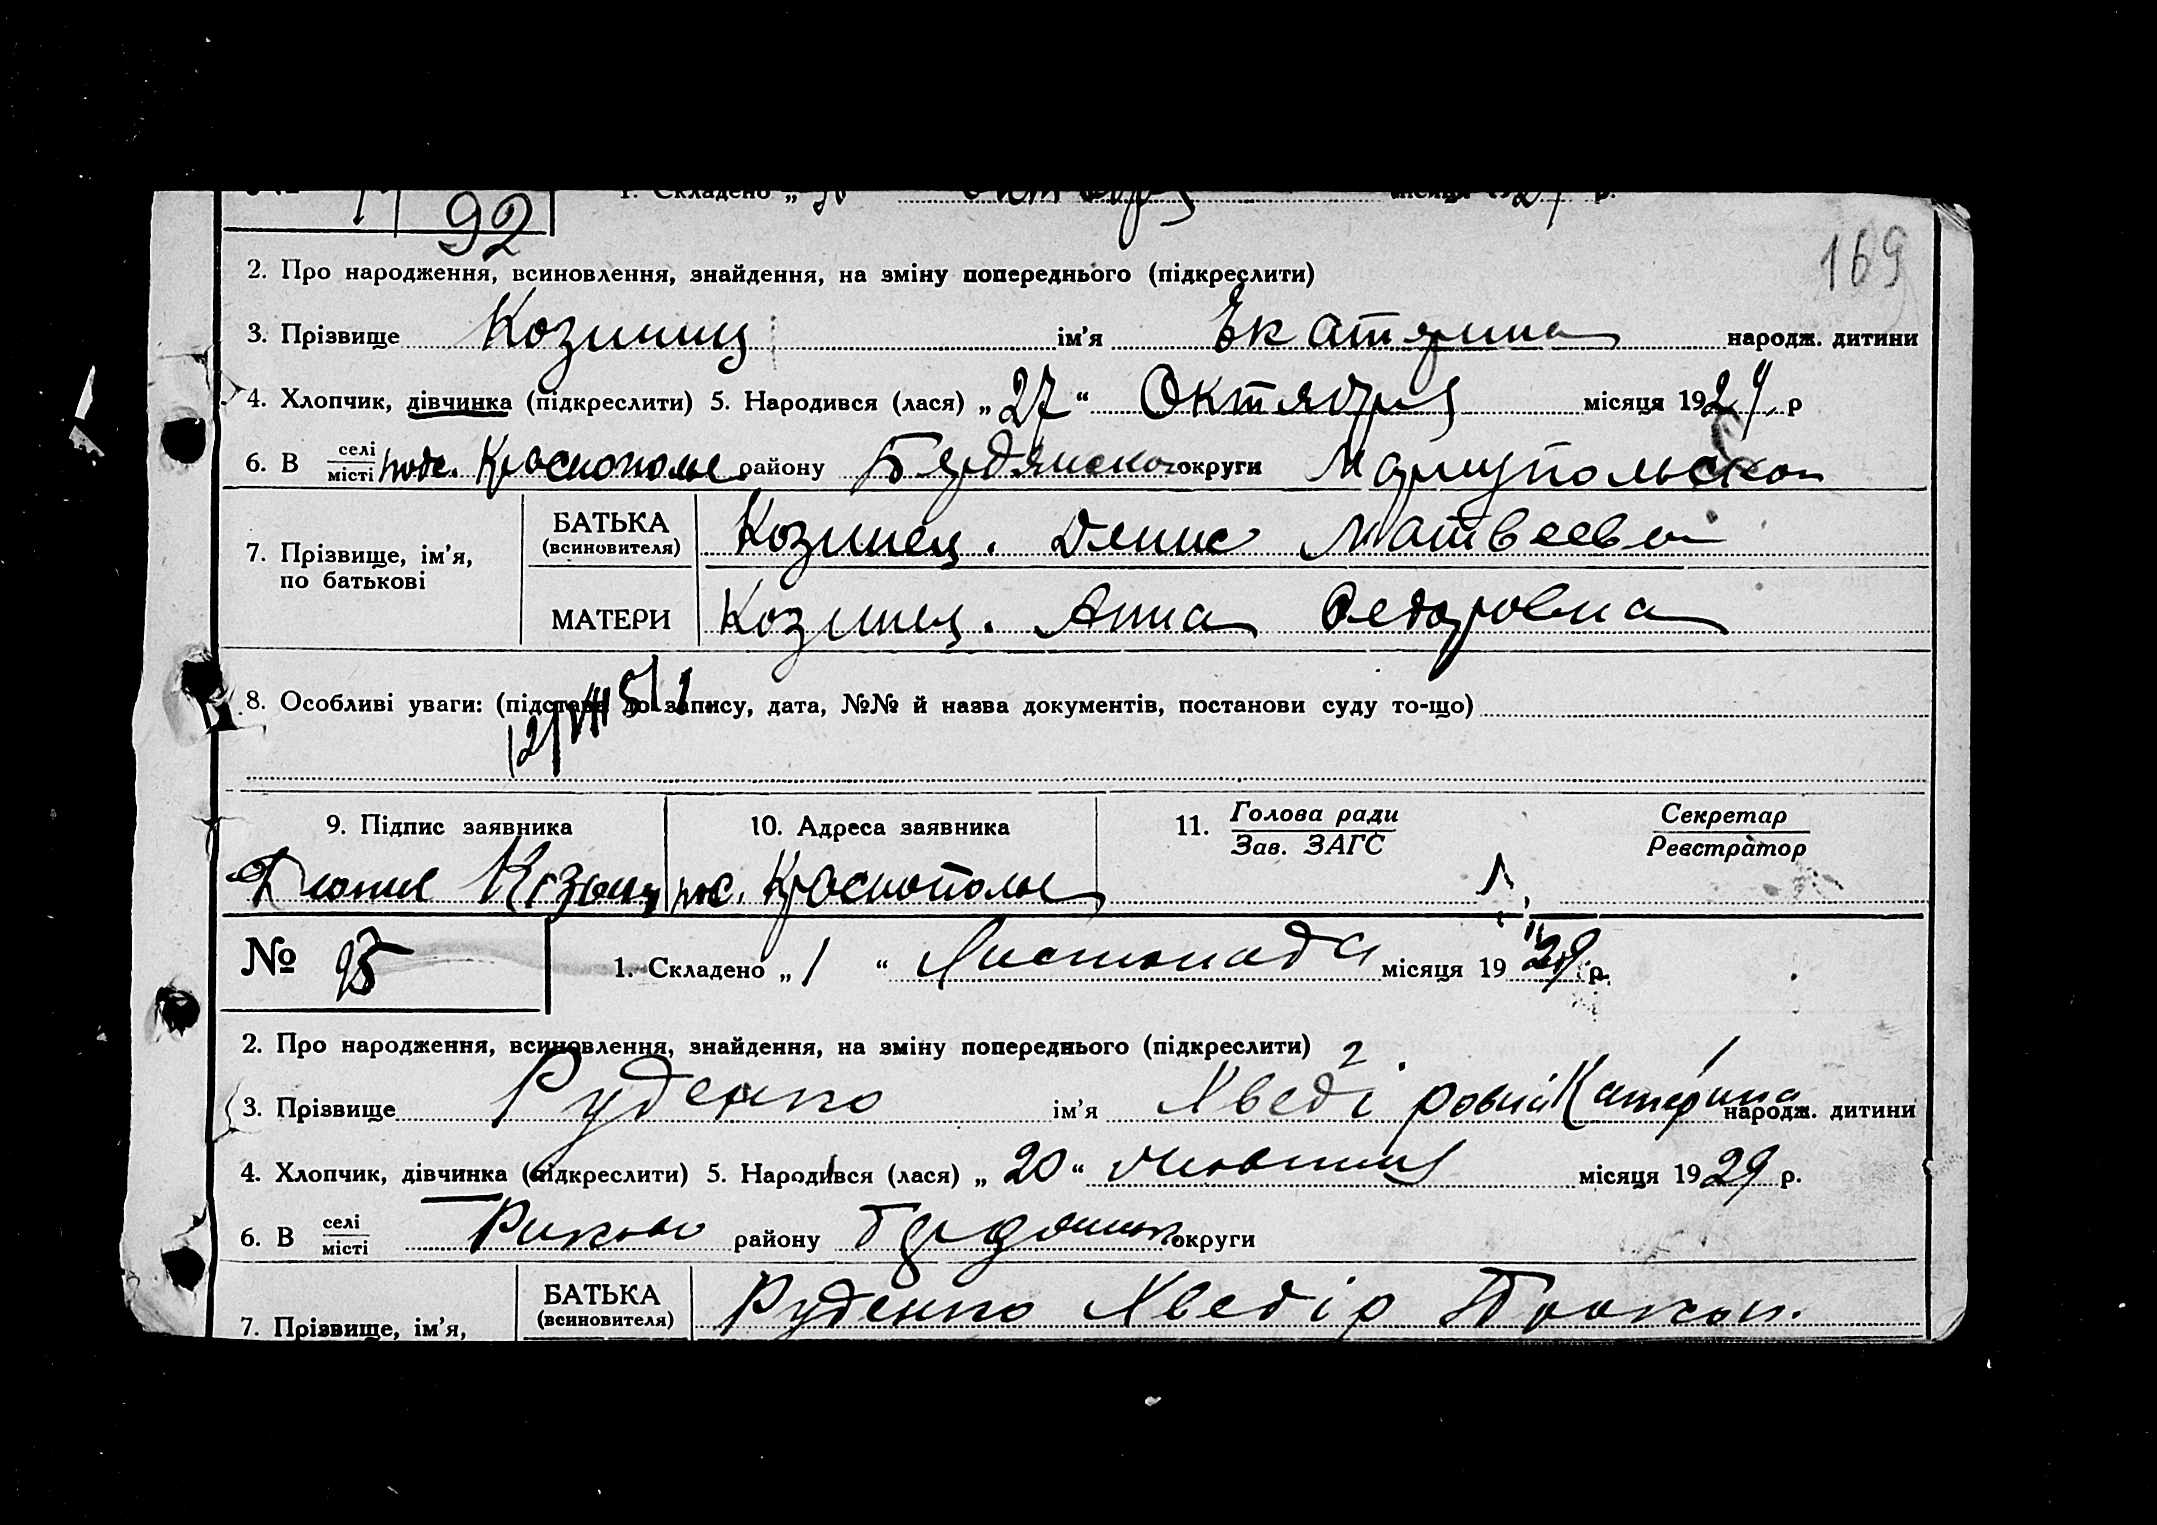 92
169
1. Складено „ місяця 192 р.
2. Про народження, всиновлення, знайдення, на зміну попереднього (підкреслити)
3. Прізвище Козинец ім’я Екатерина народж. дитини
4. Хлопчик, дівчинка (підкреслити) 5. Народився (лася) „ 27 “ Октября місяця 1929 р
6. В селі/місті Краснополье району Бердянского округи Мариупольской
7. Прізвище, ім’я, по батькові
БАТЬКА (всиновителя) Козинец. Денис Матвееви
МАТЕРИ Козинец. Анна Федоровна
8. Особливі уваги: (підстава до запису, дата, №№ й назва документів, постанови суду то-що)
9. Підпис заявника 10. Адреса заявника 11. Голова ради/Зав. ЗАГС Секретар/Реєстратор
Козинец Краснополье
№ 1. Складено „ 1 “ Листопада місяця 1929 р.
2. Про народження, всиновлення, знайдення, на зміну попереднього (підкреслити)
3. Прізвище Руденко ім’я Хведіровна Катерина народж. дитини
4. Хлопчик, дівчинка (підкреслити) 5. Народився (лася) „ 20 “ місяця 1929 р.
6. В селі/місті району округи
7. Прізвище, ім’я,
БАТЬКА (всиновителя) Руденко Хведір